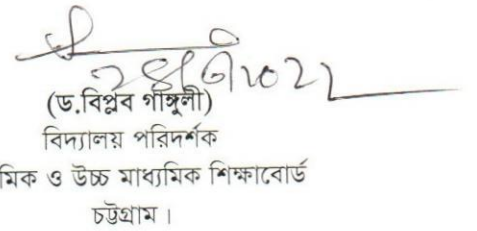 (ড.বিপ্লব গাঙ্গুলী)
বিদ্যালয় পরিদর্শক
মিক ও উচ্চ মাধ্যমিক শিক্ষাবোর্ড
চট্টগ্রাম।